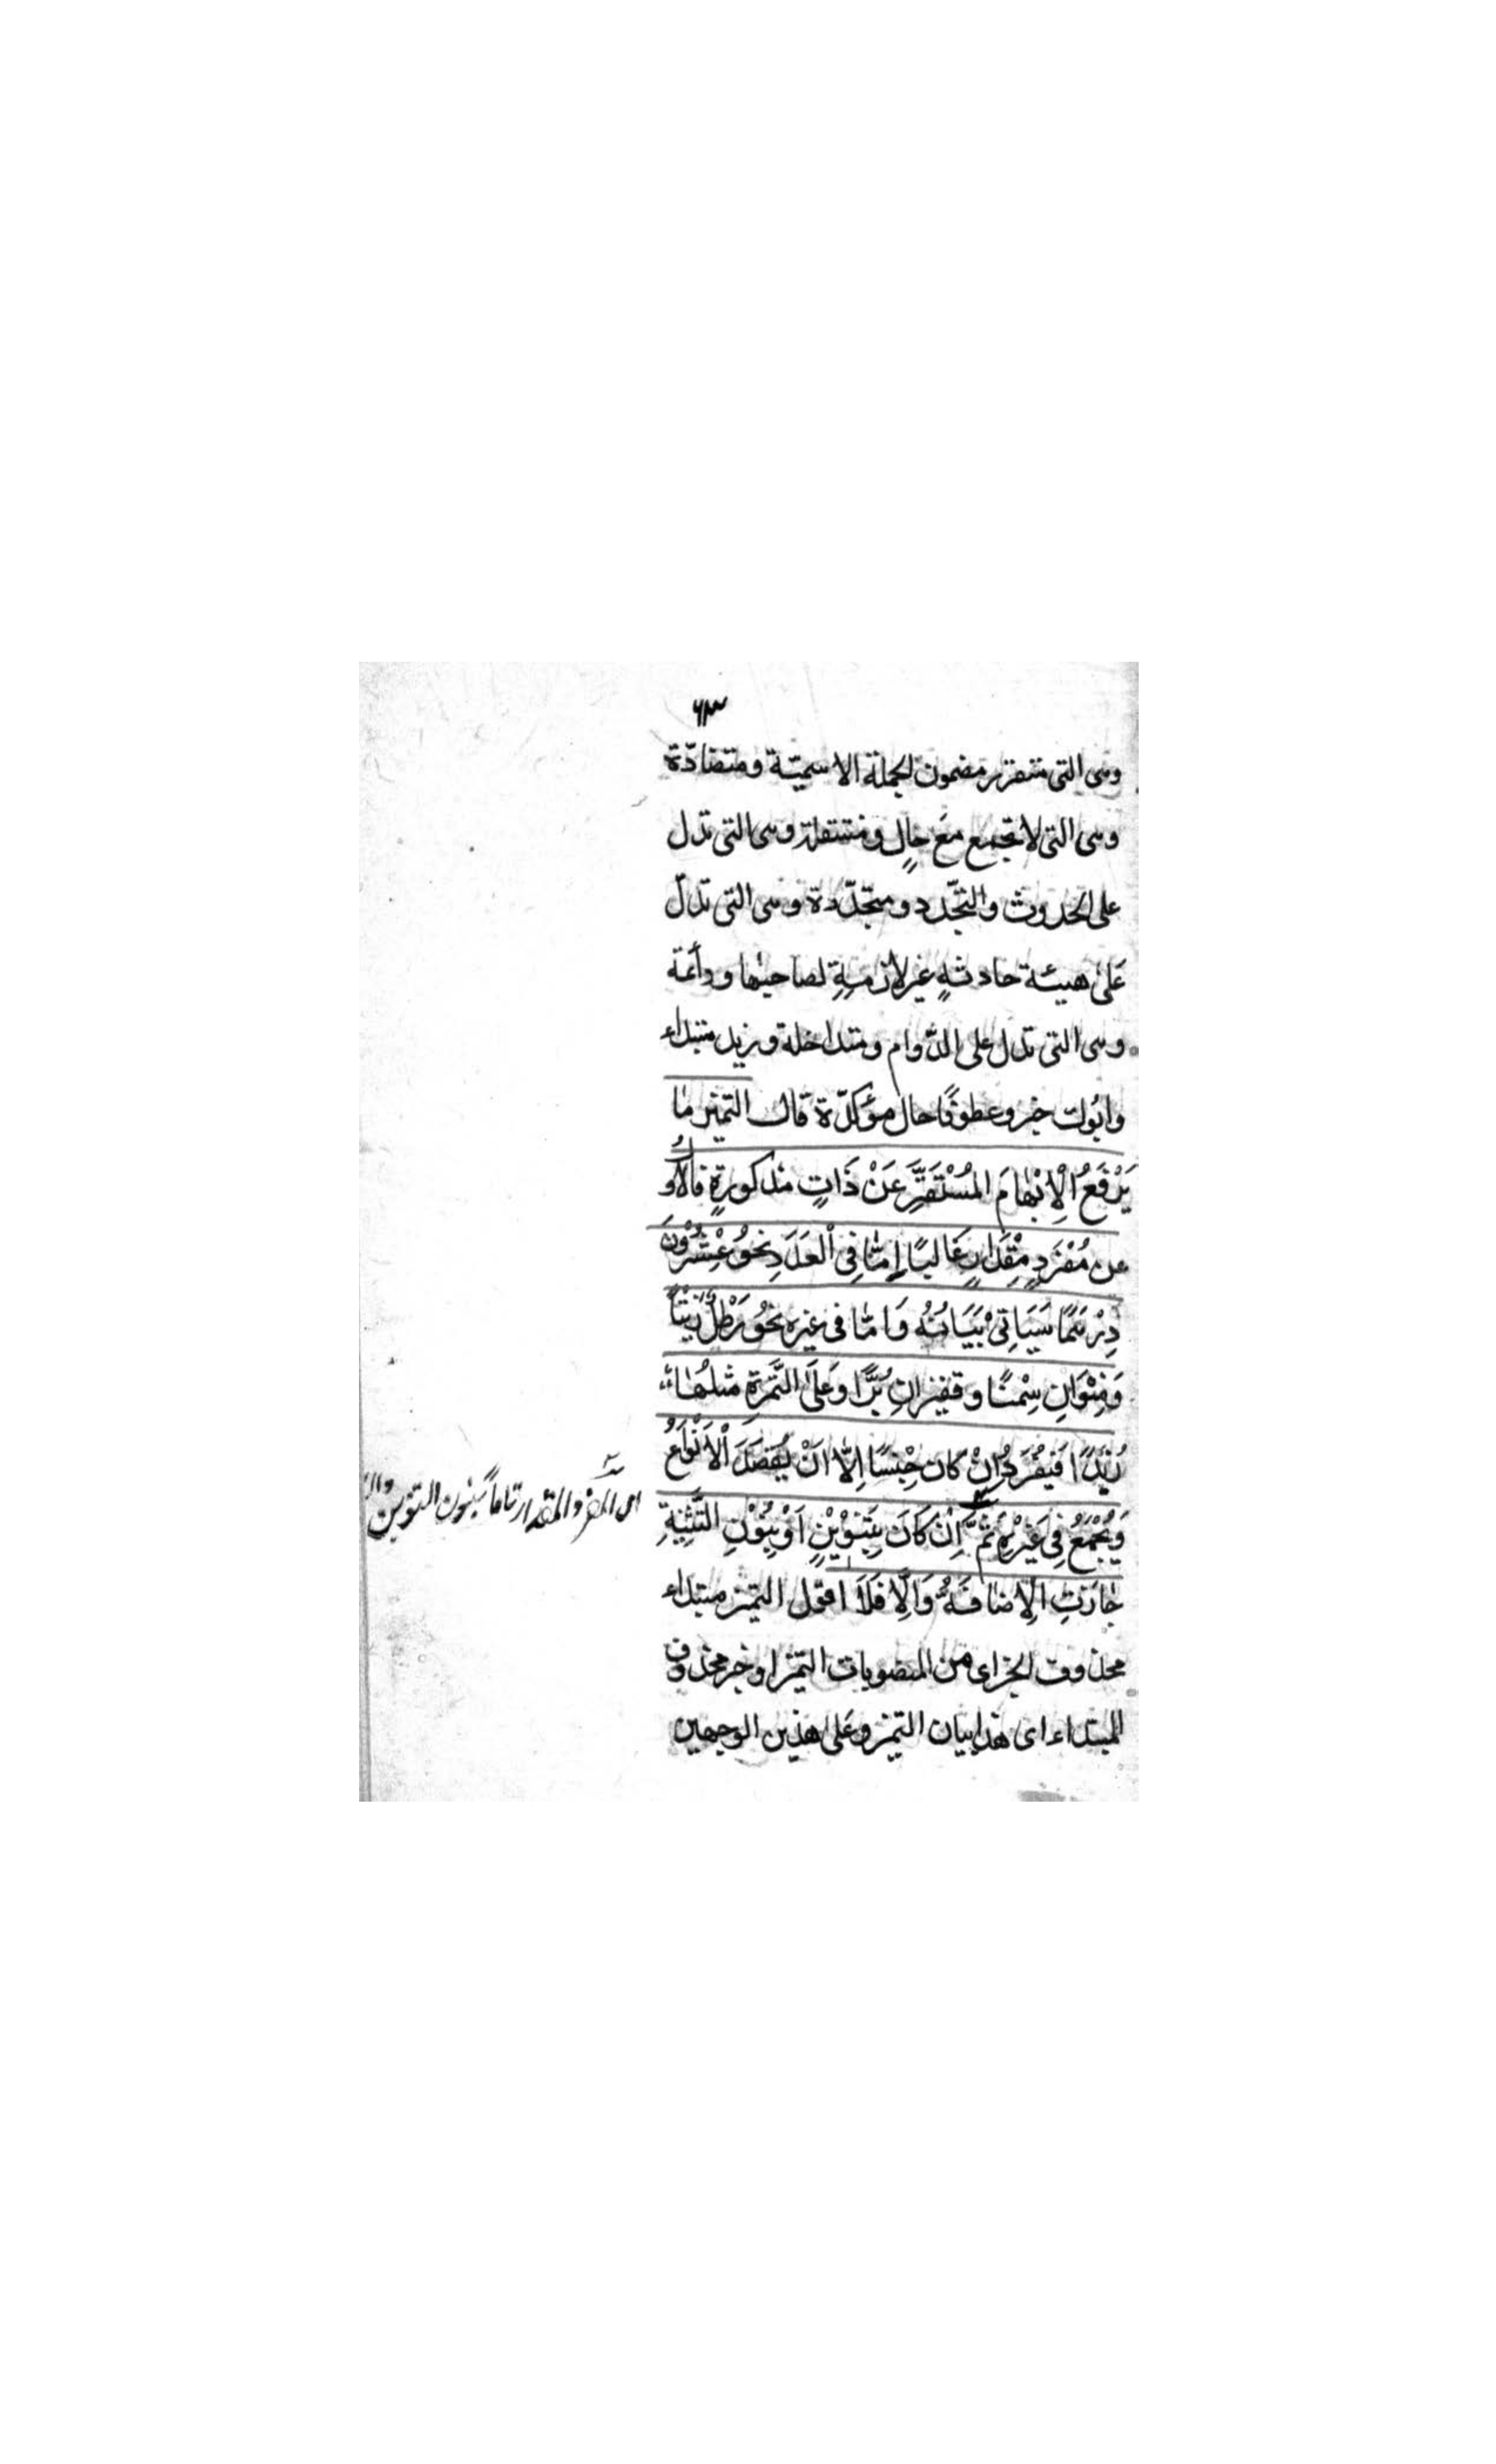 ٦٣
وهى التى تتقرر مضمون الجملة الاسميّة ومتضادّة
وهى التى لا تجتمع مع حالٍ ومنتقلة وهى التى تدل
على الحدوث والتجّدد ومتجّدّدة وهى التى تدلّ
عَلى هيئة حادثةٍ غير لازمةٍ لصاحبها ودائمة
وهى التى تدل على الدّوام ومتداخلة وزيد مبتداء
وابُوك خبر وعطوفًا حال مؤكدّة قال التميز ما
يَرْفَعُ الْاِبْهَامَ المُسْتَقَرَّ عَنْ ذَاتٍ مذكورةٍ فالأوّلُ
عن مُفْرَدٍ مِقْدَارٍ غَالبًا إِمّا فِى الْعَدَدِ نحوُ عِشْرُوْنَ
دِرْهَمًا سَيَاتِىْ بَيَانُهُ وَامّا فى غيره نحْوُ رَطْلٌ زَيْتًا
وَمَنْوَانِ سِمْنًا وقفيزانِ بُرًّا وَعَلَى التَّمَرةِ مثلُهَا
زُبْدًا فَيُفْرَدُ اِنْ كان جِنْسًا اِلّا اَنْ يُقصَدَ الْاَنْوَاعُ
وَيُجْمَعُ فِى غَيْرِهِ ثُمَّ اِنْ كَانَ بِتَنْوِيْنٍ اَوْ بِنُوْنِ التَّثْنِيَةِ
جَازَتِ الْاِضَافَةُ وَاِلّا فَلَا اقول التميز مبتداء
محذوف الخبر اى من المنصوبات التميز او خبر محذوف
المبتداء اى هذا بيان التميز وعلى هذين الوجهين
اى المفرد المقدار تاماً بنون التنوين